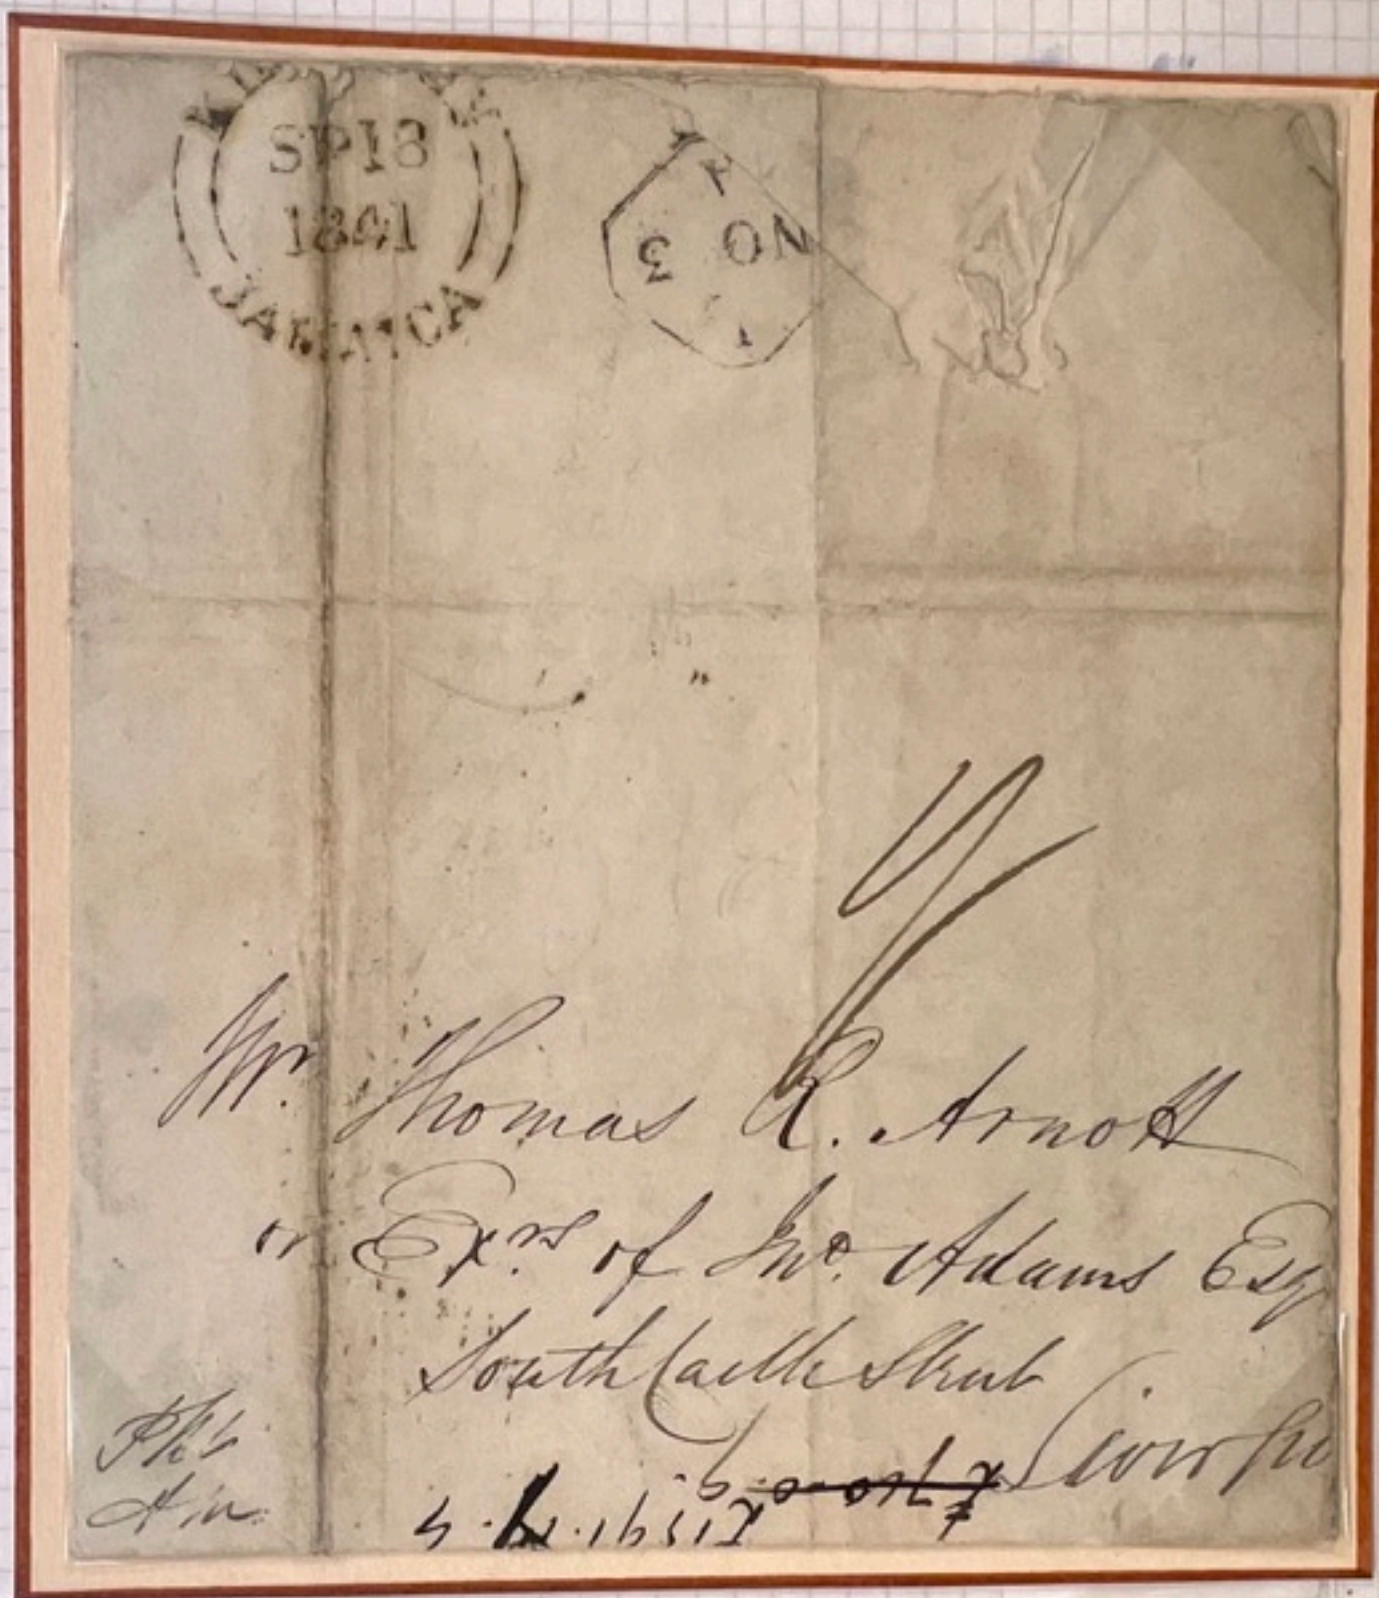 KINGSTON
SP18
1841
JAMAICA
NO 3
Mr. Thomas R. Arnott
or Exrs of Jno. Adams Esq
South Castle Street
Liverpo
Pkt